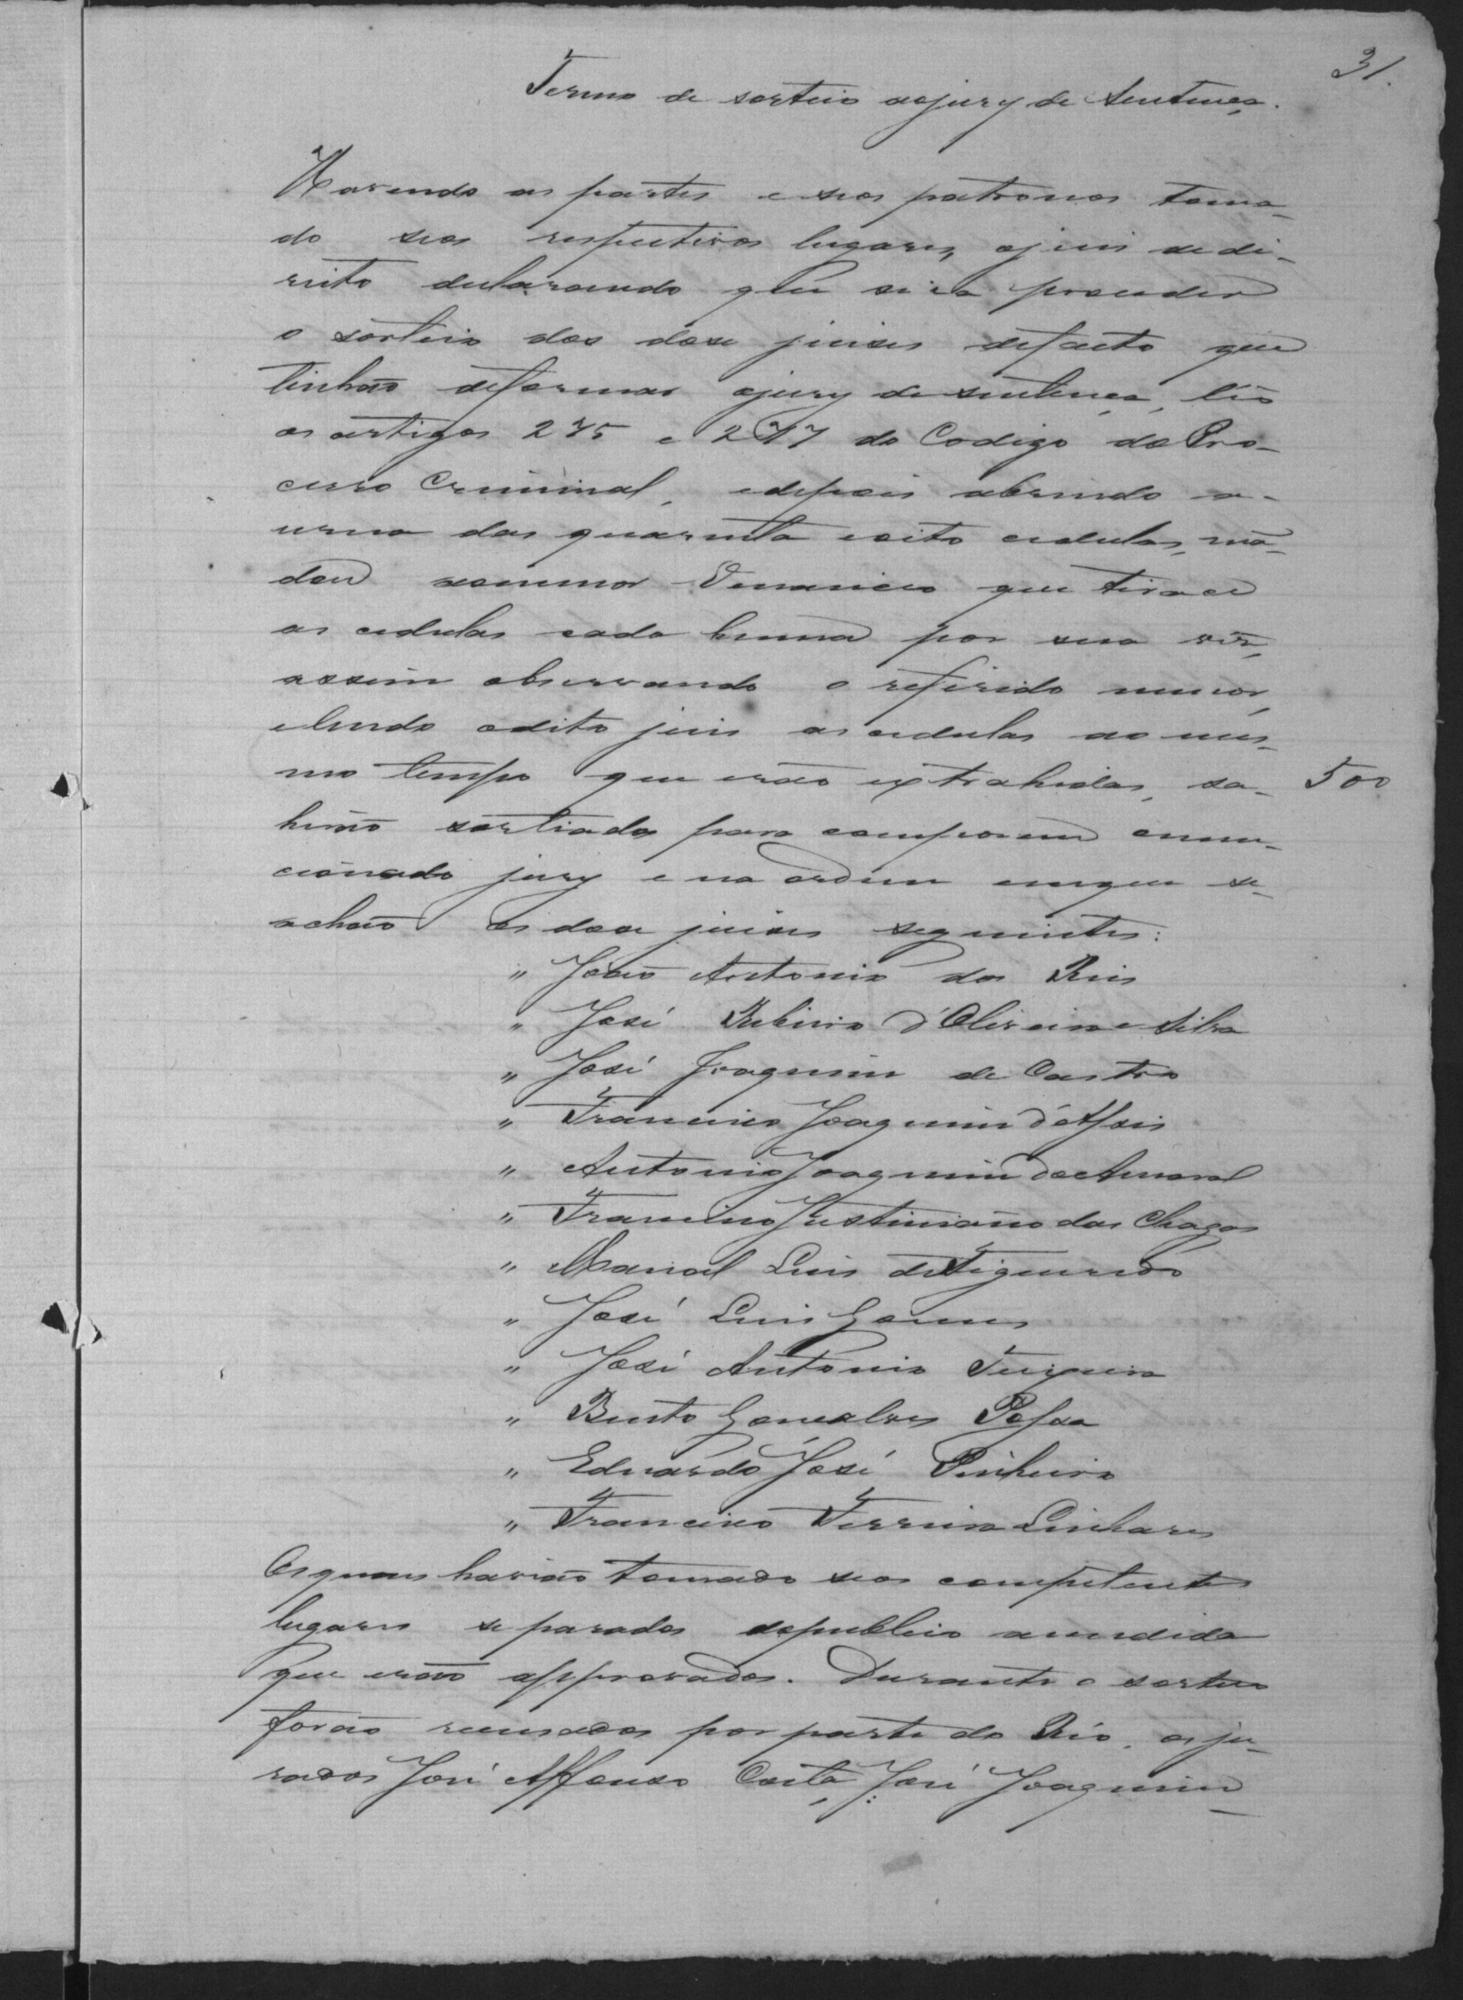 31.
Termo de sorteio do jury de Sentença.
Havendo as partes e seos patronos toma-
do seos respectivos lugares, o juis de di-
reito declarando que se ia proceder
o sorteio dos dose juises de facto que
tinhão de formar o jury de sentença, lêo
os artigos 275 e 277 do Codigo do Pro-
cesso Criminal, e depois abrindo a
urna das quarenta e oito cedulas, mã-
dou ao menor Venancio que tirace
as cedulas cada huma por sua vez,
assim observando o referido menor,
e lendo o dito juis as cedulas ao mes-
mo tempo que erão extrahidas, sa-
500
hirão sortiados para comporem o men-
cionado jury e na ordem em que se
achão os dose juises seguintes:
" João Antonio dos Reis
" José Ribeiro d'Oliveira e Silva
" José Joaquim de Castro
" Francisco Joaquim d'Assis
" Antonio Joaquim do Amaral
" Francisco Justiniano das Chagas
" Manoel Luis de Figueredo
" José Luis Gomes
" José Antonio
" Bento Gonçalves
" Eduardo José Pinheiro
" Francisco Ferreira Linhares
Os quaes havião tomado seos competentes
lugares separados do publico a medida
que erão approvados. Durante o sorteio
forão recusados por parte do Réo, os ju-
rados José Affonso Costa, José Joaquim